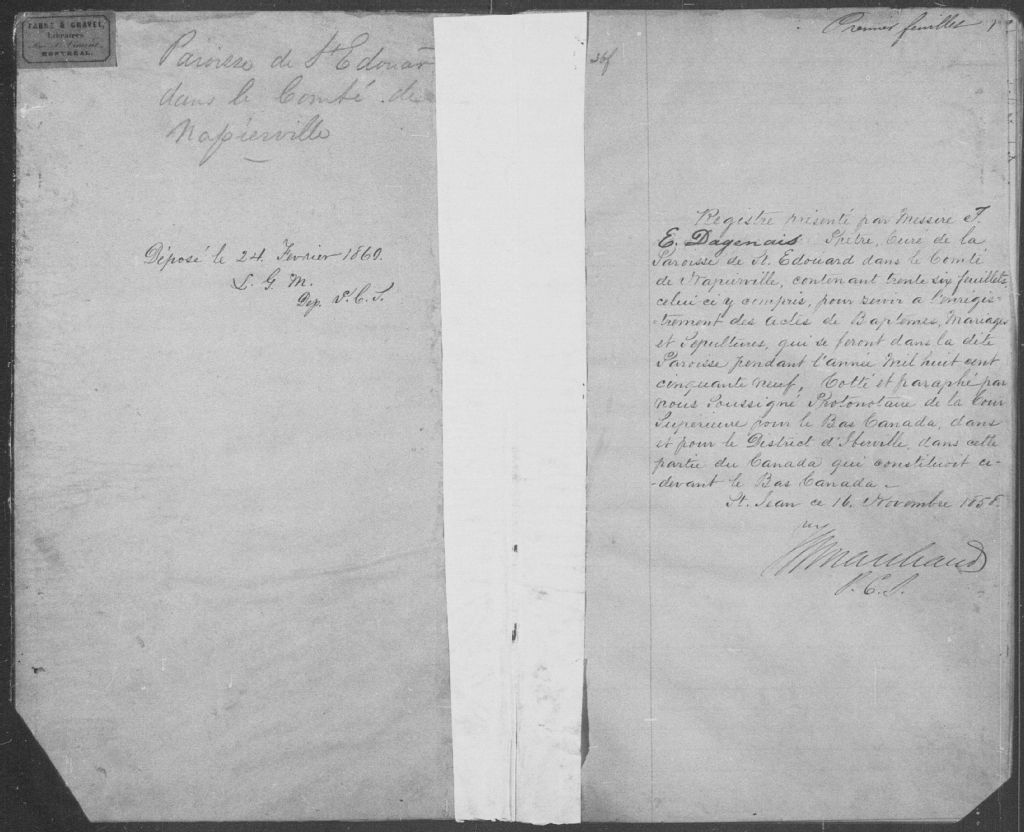 FABRE & GRAVEL,
Libraires
Rue St. Vincent,
MONTREAL.
Paroisse de St Edouard
dans le Comté de
Napierville
Déposé le 24. Fevrier 1860.
L. G. M.
Dep. P. C. S.
36f
Premier feuillet
Registre présenté par Messire J.
E. Dagenais Prêtre, Curé de la
Paroisse de St. Edouard dans le Comté
de Napierville, contenant trente six feuillets,
celui ci y compris, pour servir a l'enrégis-
-trement des actes de Baptêmes, Mariages
et Sépultures, qui se feront dans la dite
Paroisse pendant l'année Mil huit cent
cinquante neuf, Cotté et paraphé par
nous Soussigné Protonotaire de la Cour
Supérieure pour le Bas Canada, dans
et pour le District d'Iberville dans cette
partie du Canada qui constituoit ci-
-devant le Bas Canada -
St. Jean ce 16. Novembre 1858.
Marchand
P. C. S.